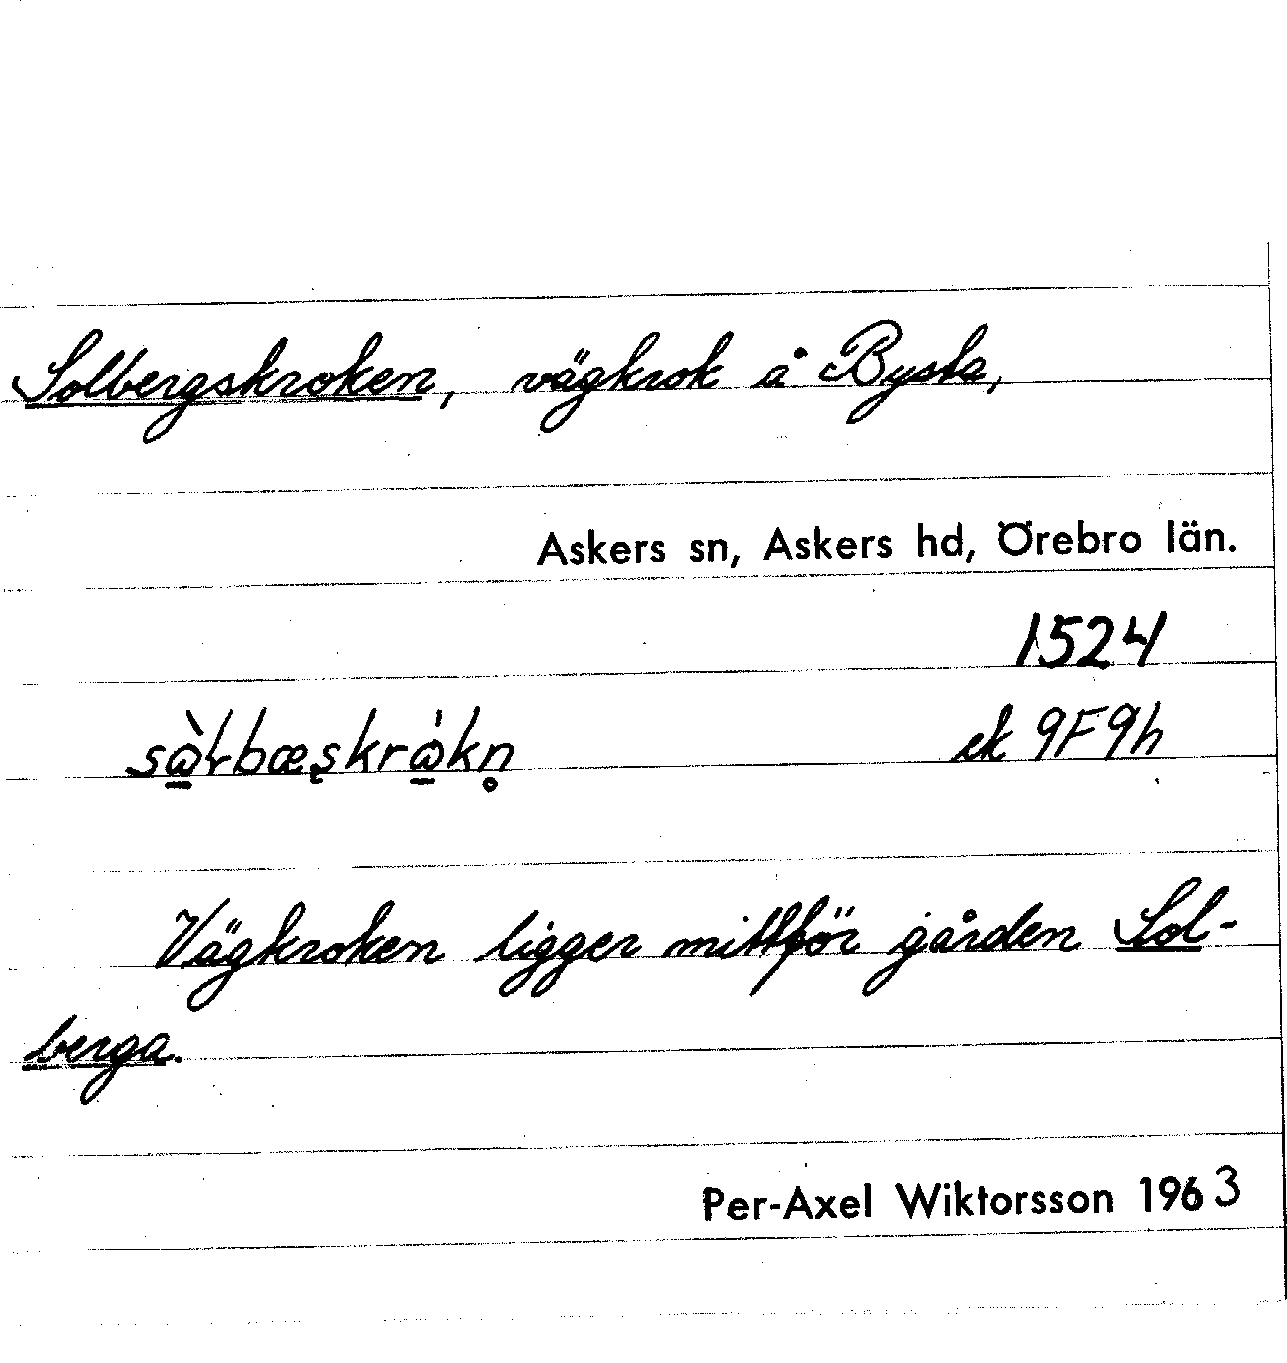 Solbergskroken, vägkrok å Bysta,
Askers sn, Askers hd, Örebro län.
1524
ek 9F9h
Vägkroken ligger mittför gården Sol-
berga.
Per-Axel Wiktorsson 1963